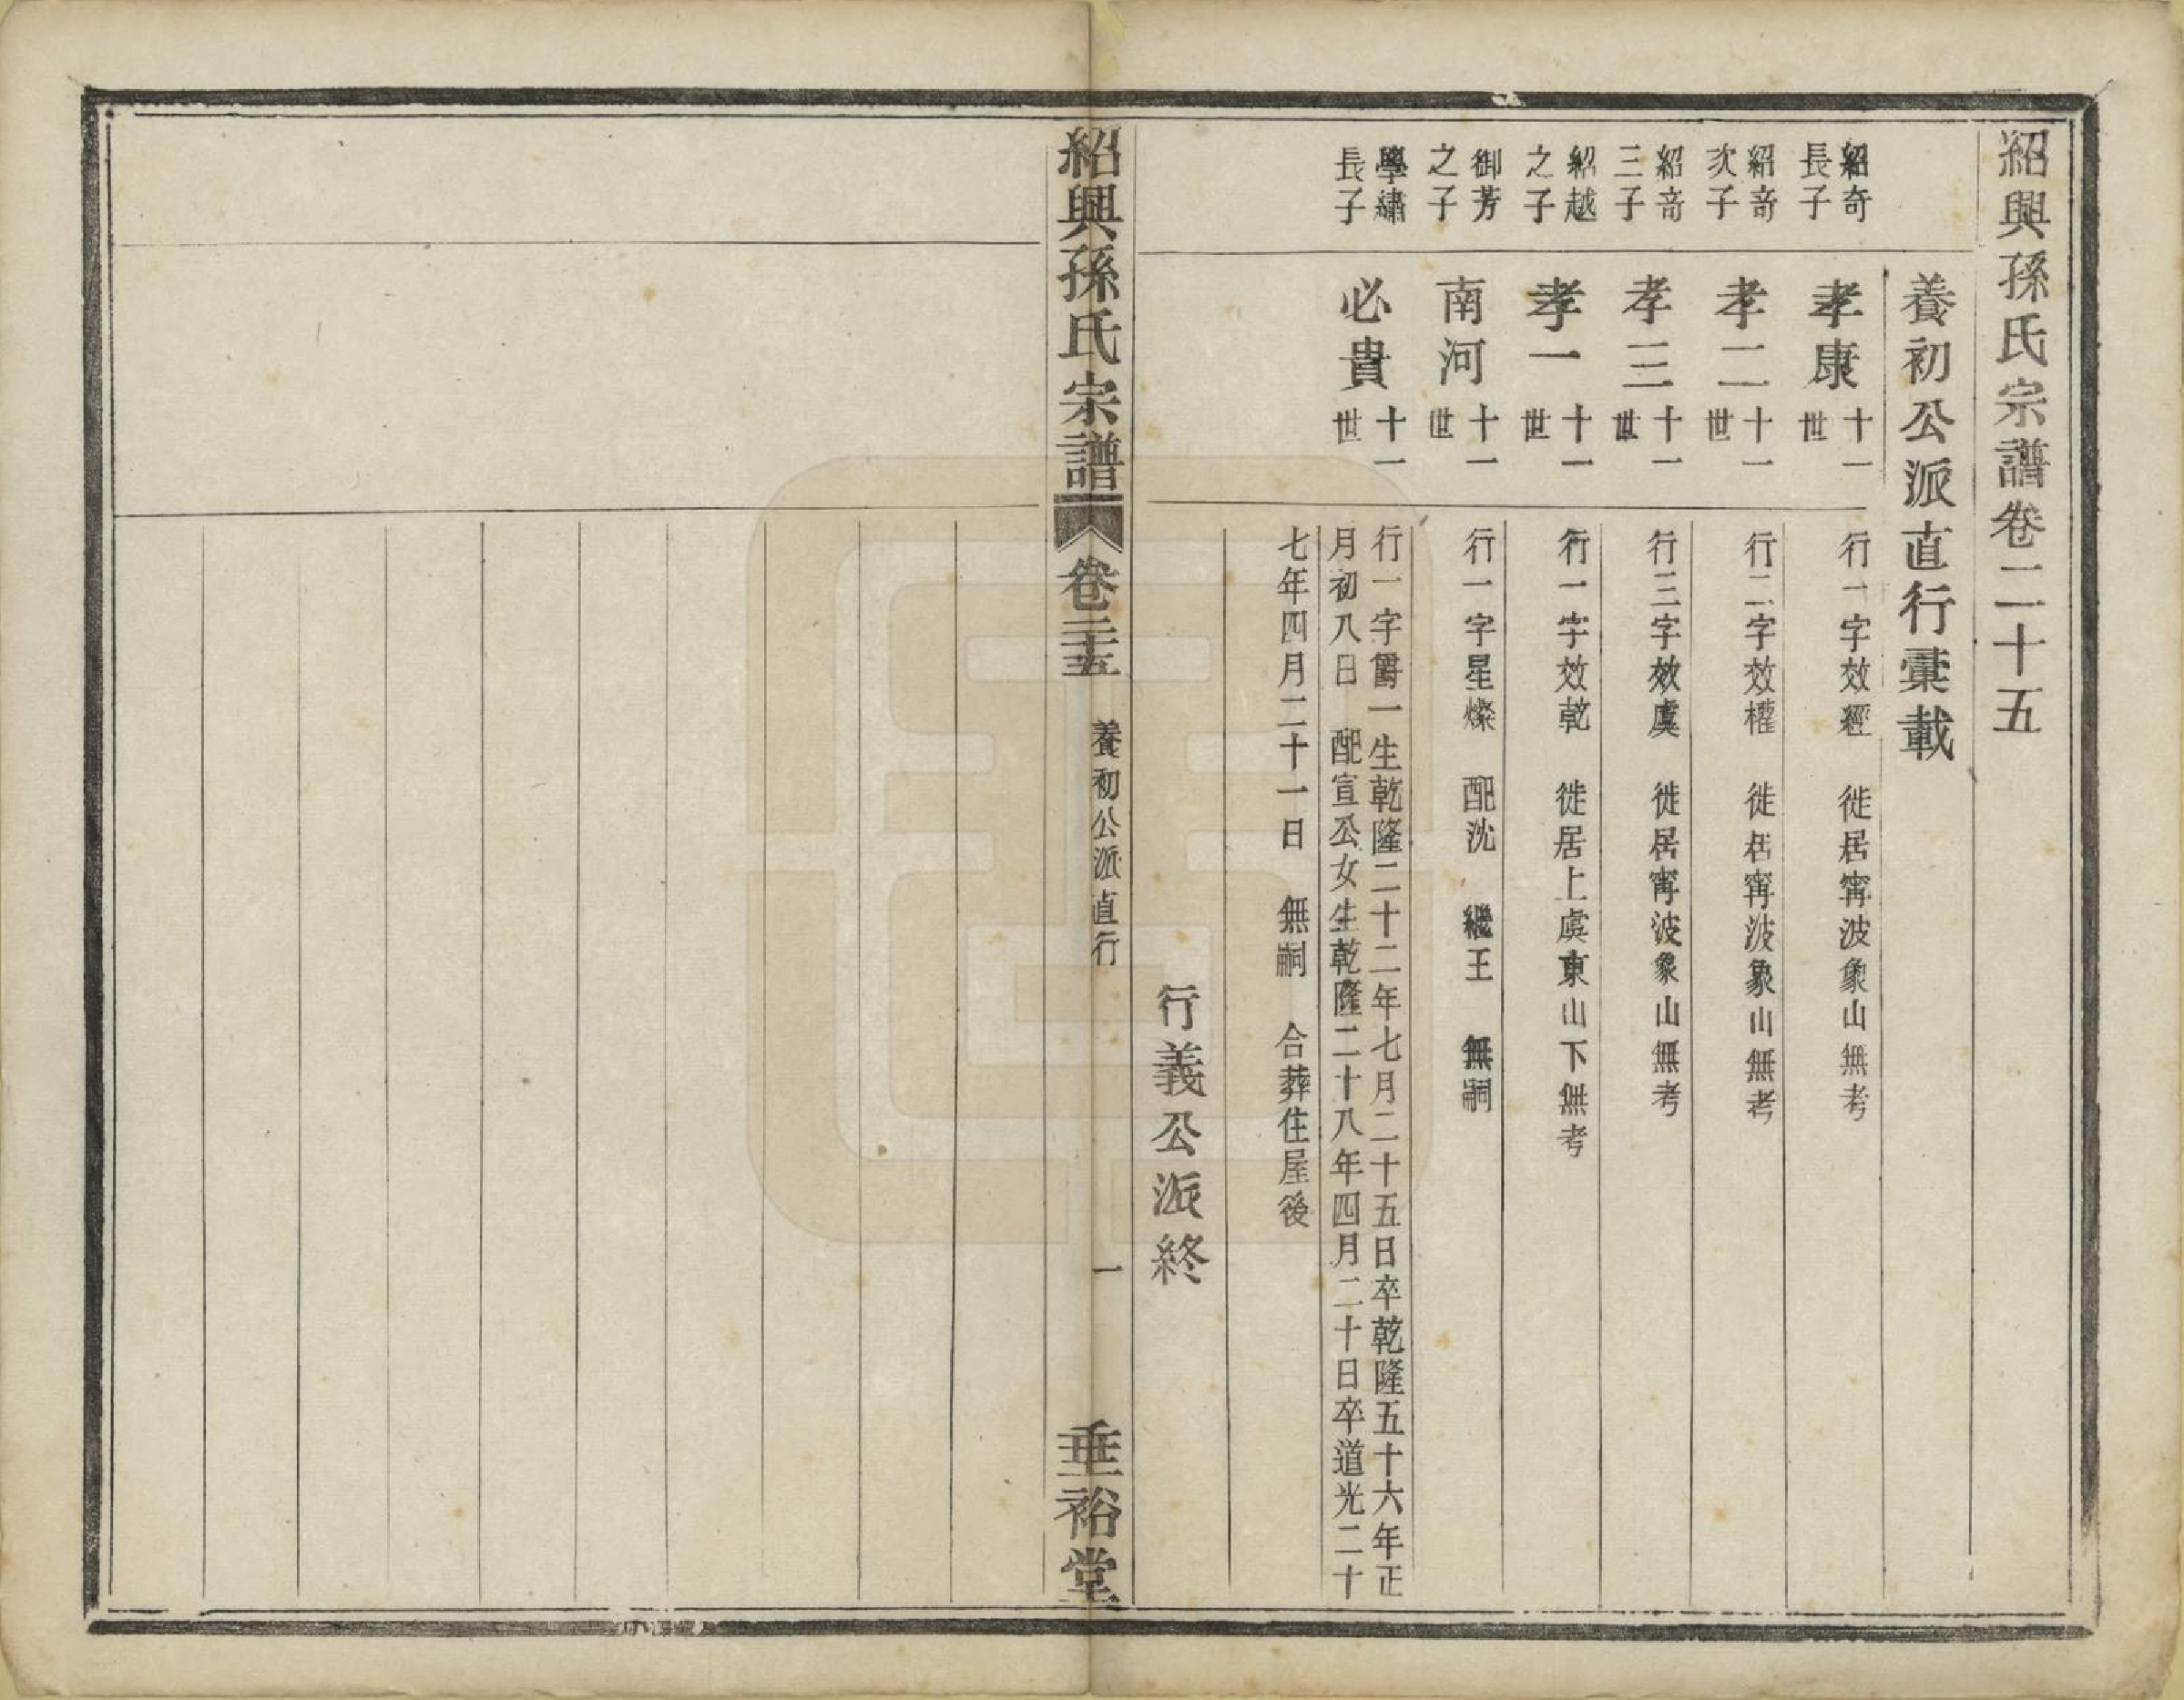 紹興孫氏宗譜卷二十五
養初公派直行彙載
紹奇
長子
孝康
十一
世
行一字效經　徙居甯波象山無考
紹奇
次子
孝二
十一
世
行二字效權　徙居甯波象山無考
紹奇
三子
孝三
十一
世
行三字效虞　徙居甯波象山無考
紹越
之子
孝一
十一
世
行一字效乾　徙居上虞東山下無考
御芳
之子
南河
十一
世
行一字星燦　配沈　繼王　無嗣
學繡
長子
必貴
十一
世
行一字爵一生乾隆二十二年七月二十五日卒乾隆五十六年正
月初八日　配宣公女生乾隆二十八年四月二十日卒道光二十
七年四月二十一日　無嗣　合葬住屋後
行義公派終
紹興孫氏宗譜　卷二十五　養初公派直行　一　垂裕堂